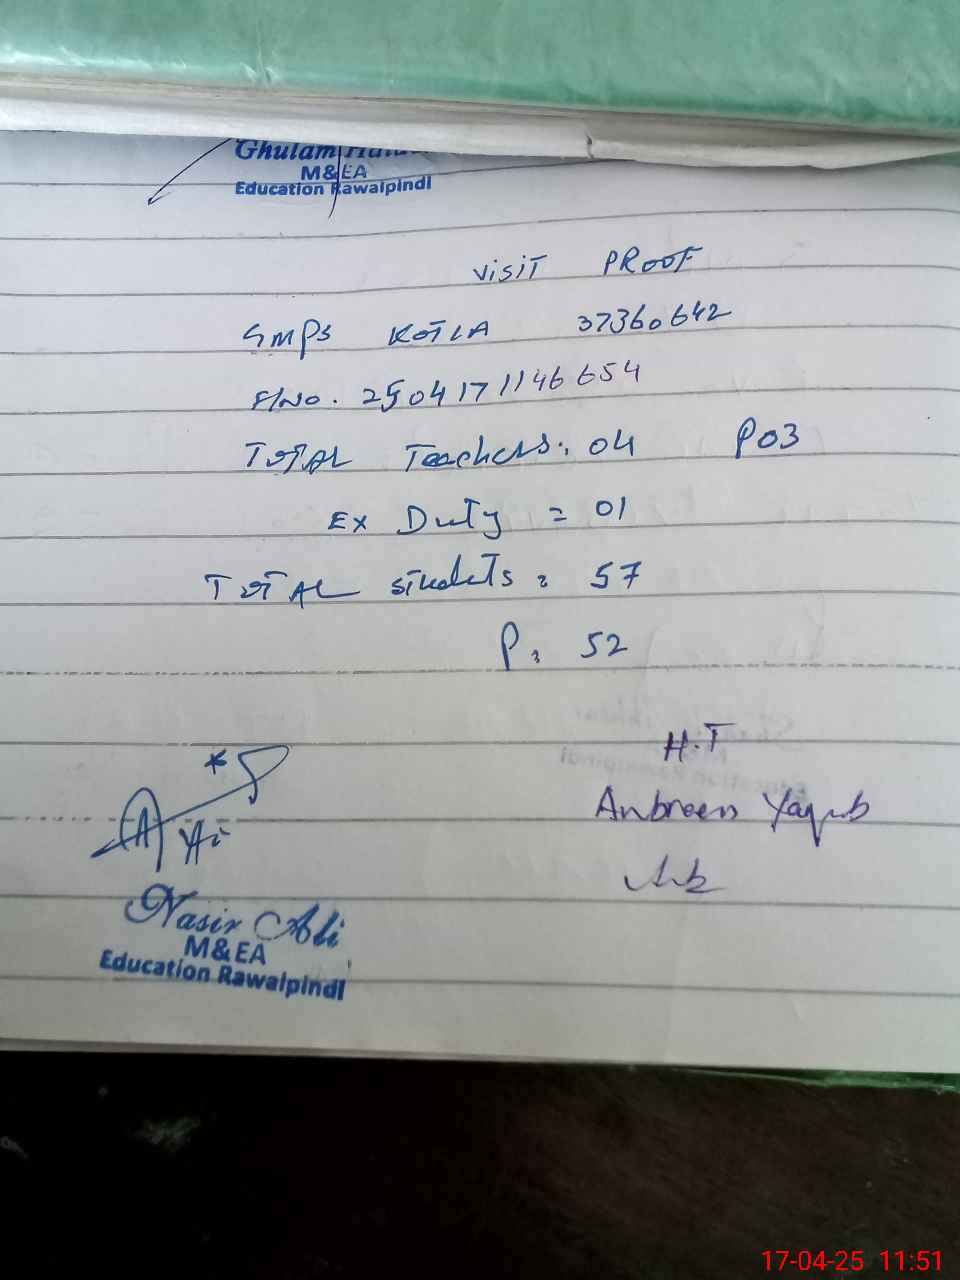 Ghulam
M&EA
Education Rawalpindi
VISIT PROOF
GMPS KOTLA 37360642
F/No. 2504171146654
TOTAL Teachers: 04 P03
Ex Duty = 01
TOTAL students = 57
P = 52
H.T
Anbreen Yaqub
Nasir Ali
M&EA
Education Rawalpindi
17-04-25 11:51